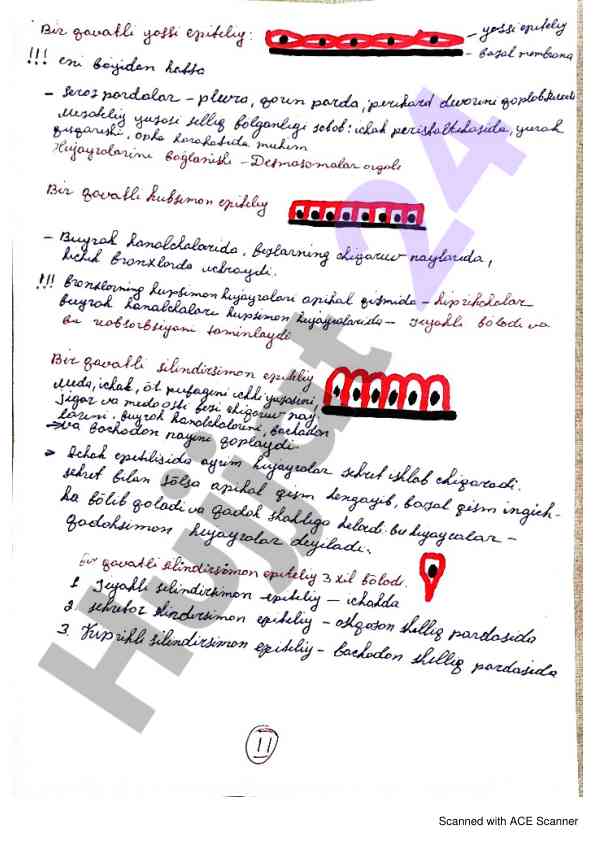 Bir qavatli yassi epiteliy:
- yassi epiteliy
- bazal membrana
!!! eni bo'yidan katta
- Seroz pardalar - plevra, qorin parda, perikard devorini qoplab turadi
Mezoteliy yuzasi silliq bo'lganligi sabab: ichak peristaltikasida, yurak
qisqarishi, o'pka harakatida muhim
Hujayralarini bog'lanishi - Desmosomalar orqali
Bir qavatli kubsimon epiteliy
- Buyrak kanalchalarida, bezlarning chiqaruv naylarida,
kichik bronxlarda uchraydi.
!!! Bronxlarning kupsimon hujayralari apikal qismida - kiprikchalar
buyrak kanalchalari kupsimon hujayralarida - Jiyakli bo'ladi va
bu reabsorbsiyani taminlaydi
Bir qavatli silindirsimon epiteliy
Meda, ichak, o't pufagini ichki yuzasini,
Jigar va meda osti bezi chiqaruv nay
larini, buyrak kanalchalarini, bachadon
va bachadon nayini qoplaydi
> Ichak epiteliysida ayrim hujayralar sekret ishlab chiqaradi.
sekret bilan to'lsa apikal qism kengayib, bazal qism ingich-
ka bo'lib qoladi va qadah shakliga keladi. bu hujayralar -
qadahsimon hujayralar deyiladi.
Bir qavatli silindirsimon epiteliy 3 xil bo'ladi.
1 Jiyakli silindirsimon epiteliy - ichakda
2 sekretor silindirsimon epiteliy - oshqozon shilliq pardasida
3. Kiprikli silindirsimon epiteliy - bachadon shilliq pardasida
11
Hujjat 24
Scanned with ACE Scanner